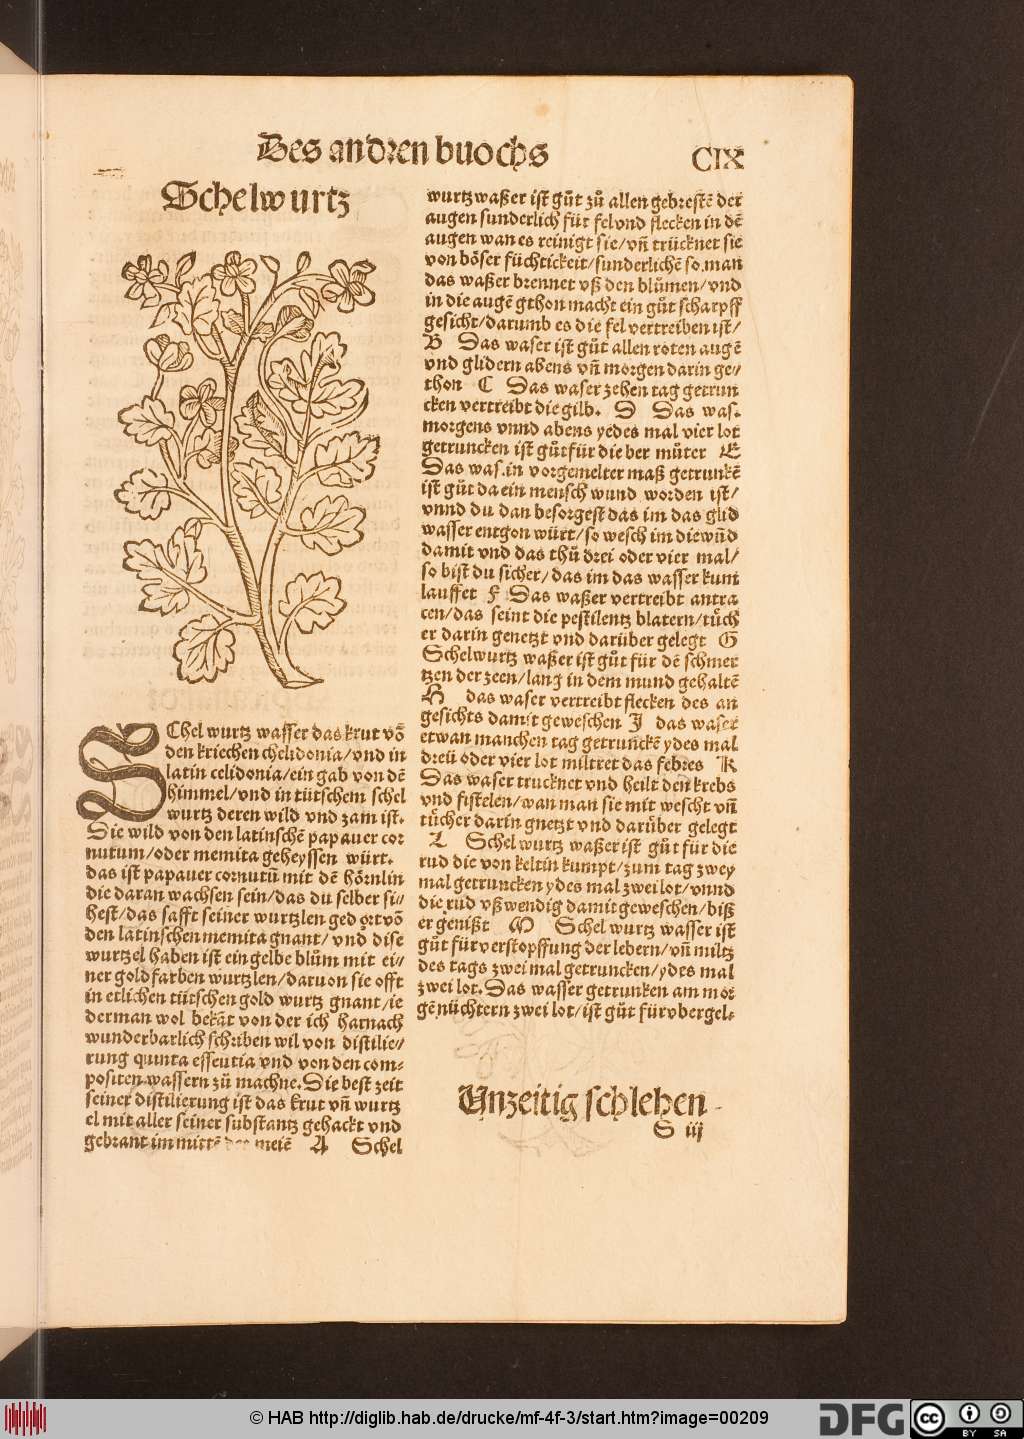 Des andren buochs
CIX
Schelwurtz
SChel wurtz wasser das krut võ
den kriechen chelidonia/vnd in
latin celidonia/ein gab von dē
himmel/vnd in tütschem schel
wurtz deren wild vnd zam ist.
Die wild von den latinschē papauer cor
nutum/oder memita geheyssen würt.
das ist papauer cornutū mit dē hörnlin
die daran wachsen sein/das du selber si//
hest/das safft seiner wurtzlen gedört võ
den latinschen memita gnant/ vnd dise
wurtzel haben ist ein gelbe blům mit ei//
ner goldfarben wurtzlen/daruon sie offt
in etlichen tütschen gold wurtz gnant/ie
derman wol bekāt von der ich harnach
wunderbarlich schriben wil von distilie//
rung quinta essentia vnd von den com⸗
positen wassern zů machne. Die best zeit
seiner distilierung ist das krut vñ wurtz
el mit aller seiner substantz gehackt vnd
gebrant im mittē des meiē A Schel
wurtz waßer ist gůt zů allen gebrestē der
augen sunderlich für fel vnd flecken in dē
augen wan es reinigt sie/vñ trücknet sie
von böser füchtickeit/sunderlichē so man
das waßer brennet vß den blůmen/vnd
in die augē gthon macht ein gůt scharpff
gesicht/darumb es die fel vertreiben ist/
B Das waser ist gůt allen roten augē
vnd glidern abens vñ morgen darin ge//
thon C Das waser zehen tag getrun
cken vertreibt die gilb. D Das was.
morgens vnnd abens yedes mal vier lot
getruncken ist gůt für die ber můter E
Das was. in vorgemelter maß getrunkē
ist gůt da ein mensch wund worden ist/
vnnd du dan besorgest das im das glid
wasser entgon würt/so wesch im die wūd
damit vnd das thů drei oder vier mal/
so bist du sicher/das im das wasser kum
lauffet F Das waßer vertreibt antra
cen/das seint die pestilentz blatern/tůch
er darin genetzt vnd darüber gelegt G
Schelwurtz waßer ist gůt für dē schmer
tzen der zeen/lang in dem mund gehaltē
H das waser vertreibt flecken des an
gesichts damit geweschen J das waser
etwan manchen tag getrunckē ydes mal
dreü oder vier lot miltret das febres K
Das waser trucknet vnd heilt den krebs
vnd fistelen/wan man sie mit wescht vñ
tůcher darin gnetzt vnd darüber gelegt
L Schel wurtz waßer ist gůt für die
rud die von keltin kumpt/zum tag zwey
mal getruncken ydes mal zwei lot/vnnd
die rud vßwendig damit geweschen/biß
er genißt M Schel wurtz wasser ist
gůt für verstopffung der lebern/vñ miltz
des tags zwei mal getruncken/ydes mal
zwei lot. Das wasser getrunken am mor
gē nüchtern zwei lot/ist gůt für vbergel⸗
Unzeitig schlehen
S iij
© HAB http://diglib.hab.de/drucke/mf-4f-3/start.htm?image=00209
DFG
cc BY SA